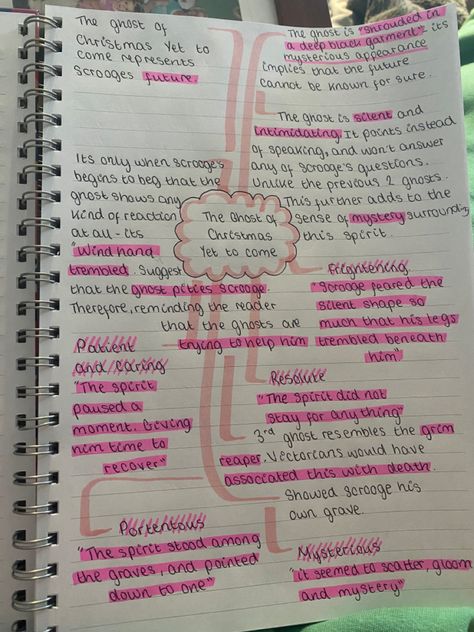 The ghost of
Christmas Yet to
come represents
Scrooges future.
The ghost is "shrouded in
a deep black garment" its
mysterious appearance
implies that the future
cannot be known for sure.
The ghost is silent and
intimidating. It points instead
of speaking, and won't answer
any of Scrooge's questions.
Unlike the previous 2 ghosts.
This further adds to the
sense of mystery surrounding
this spirit.
Its only when Scrooge's
begins to beg that the
ghost shows any
kind of reaction
at all - its
"Wind hand
trembled. Suggest
that the ghost pities Scrooge.
Therefore, reminding the reader
that the ghosts are
trying to help him
The Ghost of
Christmas
Yet to come
Frightening
"Scrooge feared the
silent shape so
much that his legs
trembled beneath
him"
Patient
and caring
"The spirit
paused a
moment. Giving
him time to
recover"
Resolute
"The spirit did not
stay for anything"
3rd ghost resembles the grim
reaper. Victorians would have
associated this with death.
Showed Scrooge his
own grave.
Portentous
"The spirit stood among
the graves, and pointed
down to one"
Mysterious
"it seemed to scatter, gloom
and mystery"